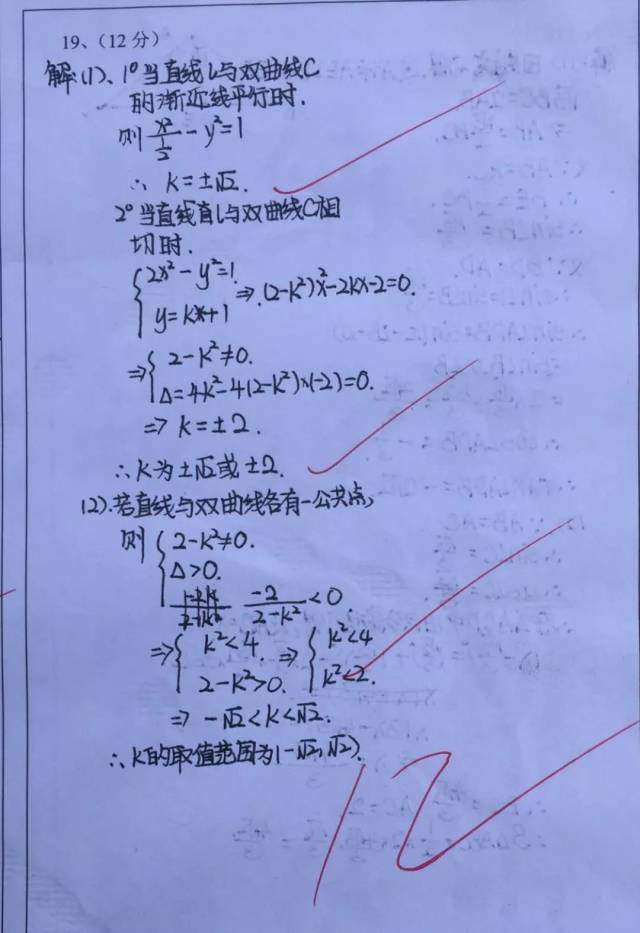 19、(12分)
解:(1)、1°当直线l与双曲线C
的渐近线平行时.
则 x²/(1/2) - y²=1
∴ k=±√2.
2°当直线直l与双曲线C相
切时.
{2x²-y²=1. y=kx+1 ⇒ (2-k²)x²-2kx-2=0.
⇒{2-k²≠0. Δ=4k²-4(2-k²)×(-2)=0.
⇒ k=±2.
∴k为±√2或±2.
(2).若直线与双曲线各有一公共点,
则{2-k²≠0. Δ>0. -2/(2-k²)<0.
⇒{k²<4. 2-k²>0. ⇒{k²<4 k²<2.
⇒ -√2<k<√2.
∴k的取值范围为(-√2,√2).
12